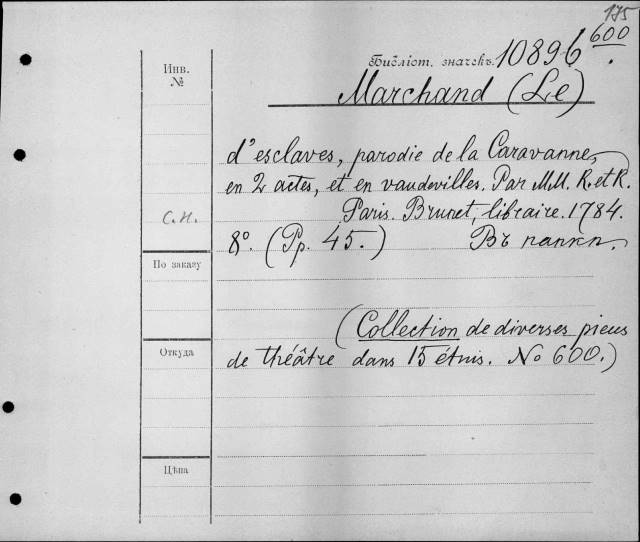 175
Инв.
№
Библіот. значекъ. 10896 600
Marchand (Le)
d'esclaves, parodie de la Caravanne,
en 2 actes, et en vaudevilles. Par M.M. R. et R.
Paris. Brunet, libraire. 1784.
С.И.
8º. (Pp. 45.) Въ папкѣ.
По заказу
(Collection de diverses pieces
Откуда
de théâtre dans 15 étuis. No 600.)
Цѣна